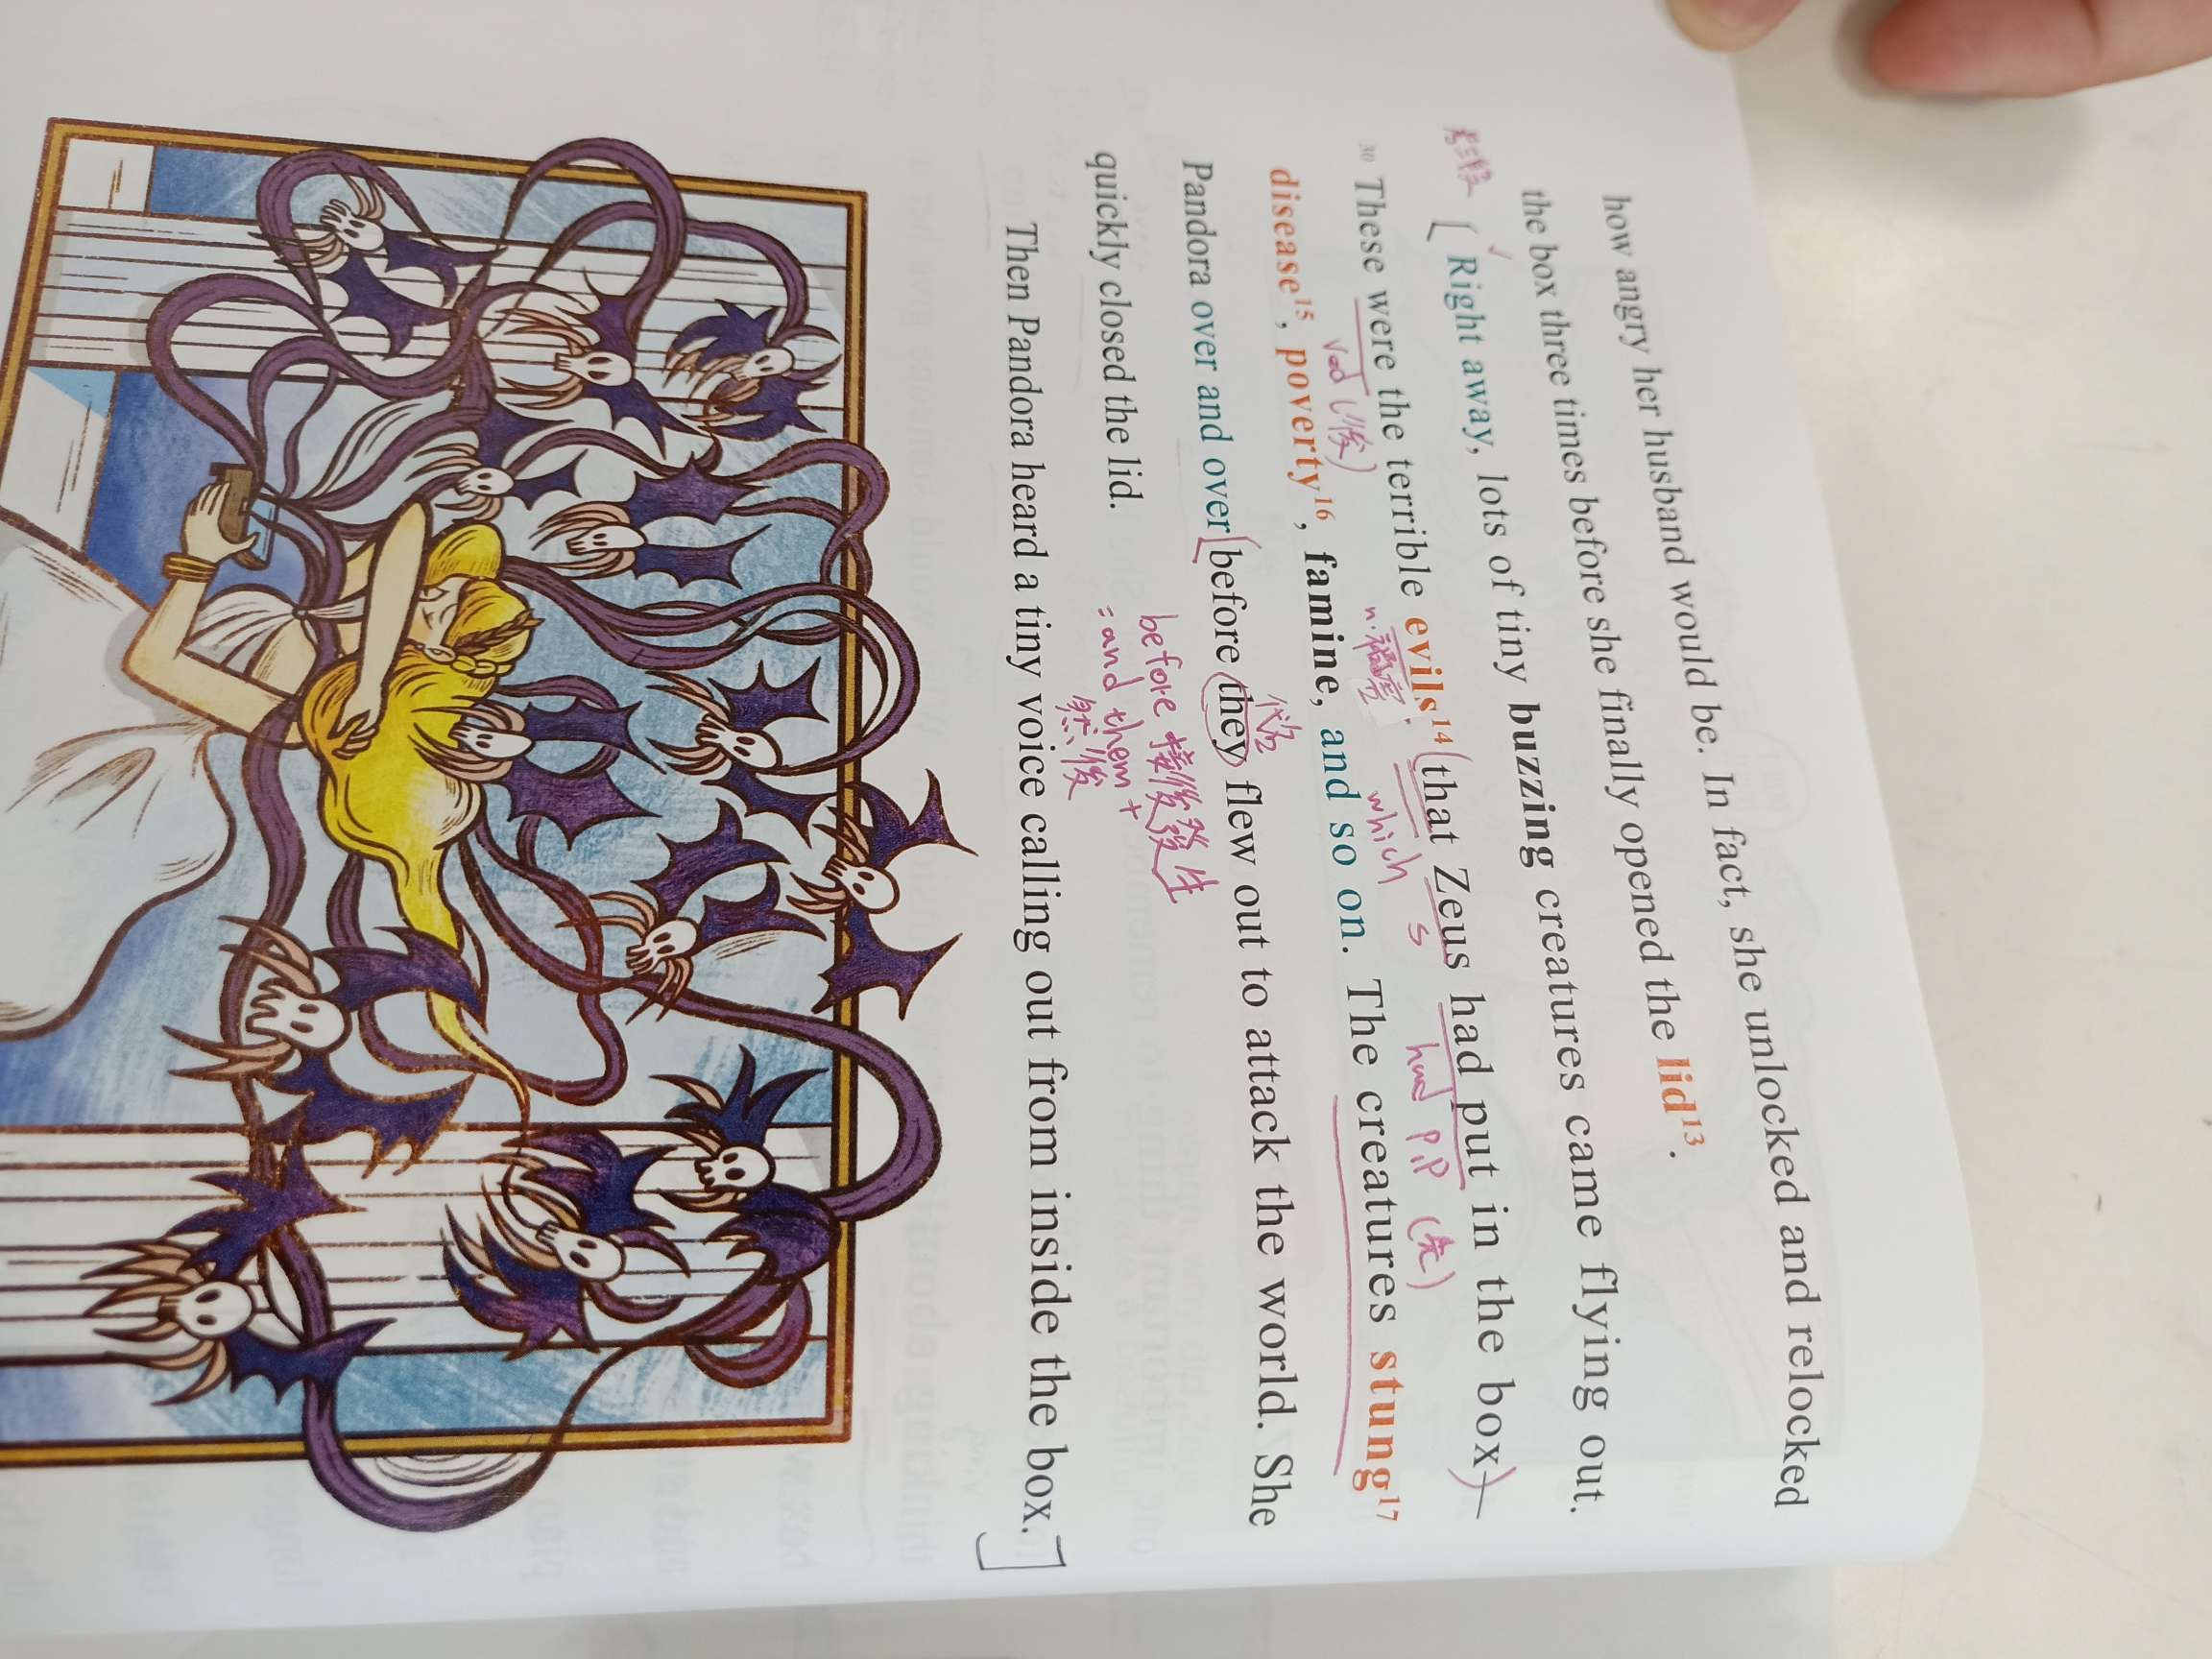 how angry her husband would be. In fact, she unlocked and relocked
the box three times before she finally opened the lid13.
Right away, lots of tiny buzzing creatures came flying out.
30 These were the terrible evils14 (that Zeus had put in the box)—
Ved (後)
n.
which
s
had p.p (先)
disease15, poverty16, famine, and so on. The creatures stung17
Pandora over and over before they flew out to attack the world. She
代
before 接後發生
= and then +
然後
quickly closed the lid.
Then Pandora heard a tiny voice calling out from inside the box.]